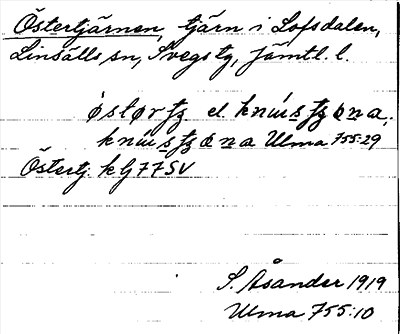 Östertjärnen, tjärn i Lofsdalen,
Linsälls sn, Svegs tg, Jämtl. l.
el.
Ulma 755:29
Östertj. klj 77 SV
S. Åsander 1919
Ulma 755:10